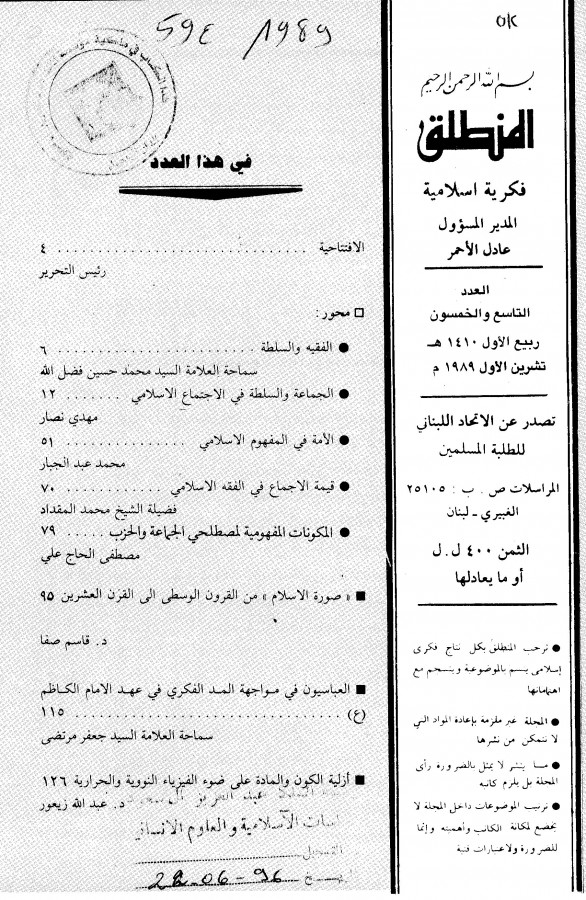 ٥٨
بسم الله الرحمن الرحيم
المنطلق
فكرية اسلامية
المدير المسؤول
عادل الأحمر
العدد
التاسع والخمسون
ربيع الأول ١٤١٠ هـ
تشرين الأول ١٩٨٩ م
تصدر عن الاتحاد اللبناني
للطلبة المسلمين
المراسلات ص . ب : ٢٥١٠٥
الغبيري - لبنان
الثمن ٤٠٠ ل.ل
أو ما يعادلها
● ترحب المنطلق بكل نتاج فكري
إسلامي يتسم بالموضوعية وينسجم مع
اهتماماتها
● المجلة غير ملزمة بإعادة المواد التي
لا تتمكن من نشرها
● مـا ينشر لا يمثل بالضرورة رأي
المجلة بل يلزم كاتبه
● ترتيب الموضوعات داخل المجلة لا
يخضع لمكانة الكاتب وأهميته وإنما
للضرورة ولاعتبارات فنية
1989
في هذا العدد
الافتتاحية . . . . . . . . . . . . . . . . . . . . . . . ٤
رئيس التحرير
□ محور :
● الفقيه والسلطة . . . . . . . . . . . . . . . . . . ٦
سماحة العلامة السيد محمد حسين فضل الله
● الجماعة والسلطة في الاجتماع الاسلامي . . . . . . ١٢
مهدي نصار
● الأمة في المفهوم الاسلامي . . . . . . . . . . . . . ٥١
محمد عبد الجبار
● قيمة الاجماع في الفقه الاسلامي . . . . . . . . . . ٧٠
فضيلة الشيخ محمد المقداد
● المكونات المفهومية لمصطلحي الجماعة والحزب . . . . . ٧٩
مصطفى الحاج علي
■ « صورة الاسلام » من القرون الوسطى الى القرن العشرين ٩٥
د. قاسم صفا
■ العباسيون في مواجهة المد الفكري في عهد الامام الكاظم
(ع) . . . . . . . . . . . . . . . . . . . . . . . . . . ١١٥
سماحة العلامة السيد جعفر مرتضى
■ أزلية الكون والمادة على ضوء الفيزياء النووية والحرارية ١٢٦
د. عبد الله زيعور
الآسلامية و العلوم الانسانية
التسجيل
28-06-96